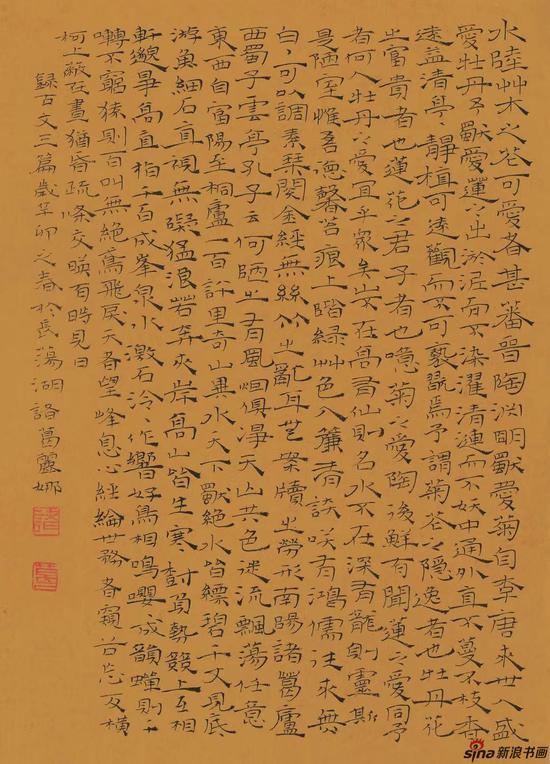 水陸艸木之花可愛者甚蕃晉陶淵明獨愛菊自李唐來世人盛
愛牡丹予獨愛蓮之出淤泥而不染濯清漣而不妖中通外直不蔓不枝香
遠益清亭〻靜植可遠觀而不可褻翫焉予謂菊花之隱逸者也牡丹花
之富貴者也蓮花之君子者也噫菊之愛陶後鮮有聞蓮之愛同予
者何人牡丹之愛宜乎眾矣山不在高有仙則名水不在深有龍則靈斯
是陋室惟吾德馨苔痕上階綠艸色入簾青談咲有鴻儒往來無
白丁可以調素琴閱金經無絲竹之亂耳無案牘之勞形南陽諸葛廬
西蜀子雲亭孔子云何陋之有風煙俱淨天山共色從流飄蕩任意
東西自富陽至桐廬一百許里奇山異水天下獨絕水皆縹碧千丈見底
游魚細石直視無礙猛浪若奔夾岸高山皆生寒樹負勢競上互相
軒邈爭高直指千百成峯泉水激石泠〻作響好鳥相鳴嚶成韻蟬則千
囀不窮猿則百叫無絕鳶飛戾天者望峰息心經綸世務者窺谷忘反橫
柯上蔽在晝猶昏疏條交映有時見日
錄古文三篇歲辛卯之春於長蕩湖諸葛麗娜
sina新浪书画